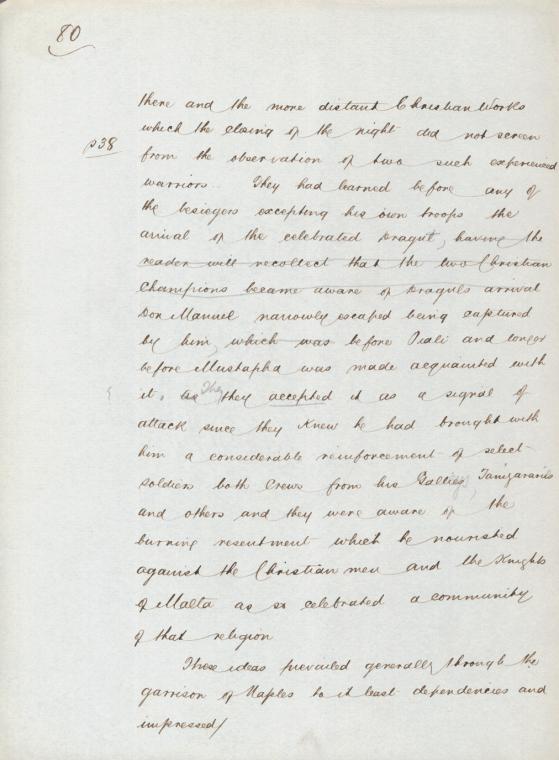 80
there and the more distant Christian Works
p38
which the closing of the night did not screen
from the observation of two such experienced
warriors. They had learned before any of
the besiegers excepting his own troops the
arrival of the celebrated Dragut, having the
reader will recollect that the two Christian
Champions became aware of Draguts arrival
Don Manuel narrowly escaped being captured
by him, which was before Piali and longer
before Mustapha was made acquainted with
it. as They they accepted it as a signal of
attack since they knew he had brought with
him a considerable reinforcement of select
soldiers both Crews from his Gallies, Janizararies
and others and they were aware of the
burning resentment which he nourished
against the Christian men and the Knights
of Malta as so celebrated a community
of that religion
These ideas prevailed generally through the
garrison of Naples to it least dependencies and
impressed/